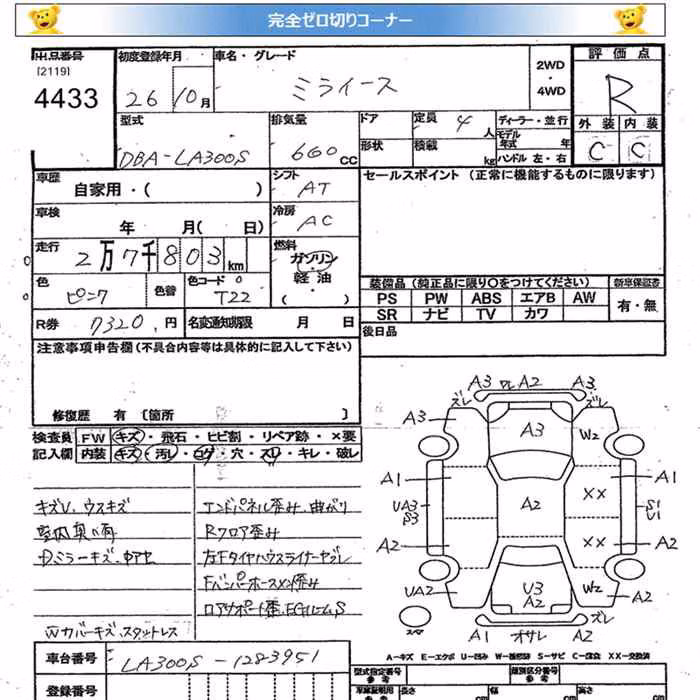 完全ゼロ切りコーナー
出品番号 初度登録年月 車名・グレード 2WD ・ 4WD 評価点
[2119]
4433 26 10月 ミライース R
型式 排気量 ドア 定員 4人 ディーラー・並行 外装 内装
DBA-LA300S 660cc 形状 積載 kg モデル年式 年 ハンドル 左・右 C C
車歴 自家用・( ) シフト AT セールスポイント (正常に機能するものに限ります)
車検 年 月( 日) 冷房 AC
走行 2万7千803km 燃料 ガソリン・軽油・( )
色 ピンク 色替 色コード T22
装備品 (純正品に限り○をつけてください) 新車保証書
PS PW ABS エアB AW 有・無
SR ナビ TV カワ
R券 7320円 名変通知期限 月 日 後日品
注意事項申告欄 (不具合内容等は具体的に記入して下さい)
修復歴 有 [箇所 ]
検査員記入欄 FW キズ・飛石・ヒビ割・リペア跡・×要
内装 キズ・汚レ・コゲ・穴・スレ・キレ・破レ
キズV、ウスキズ エンドパネル歪み、曲がり
Rフロア歪み
Dミラーキズ
Fバンパーホースメン歪み
Wカバーキズ、スタットレス
A3 ワレ A2 A3
ズレ ズレ
A3 A3 W2
A1 XX A1
UA3 S3 A2 S1 U1
A2 XX A2
UA2 U3 A2 W2
スペア ズレ
A1 オサレ A2
A－キズ E－エクボ U－凹み W－補修跡 S－サビ C－腐食 XX－交換済
車台番号 LA300S-1283951
登録番号
型式指定番号 参考 類別区分番号 参考
長さ cm 幅 cm 高さ cm